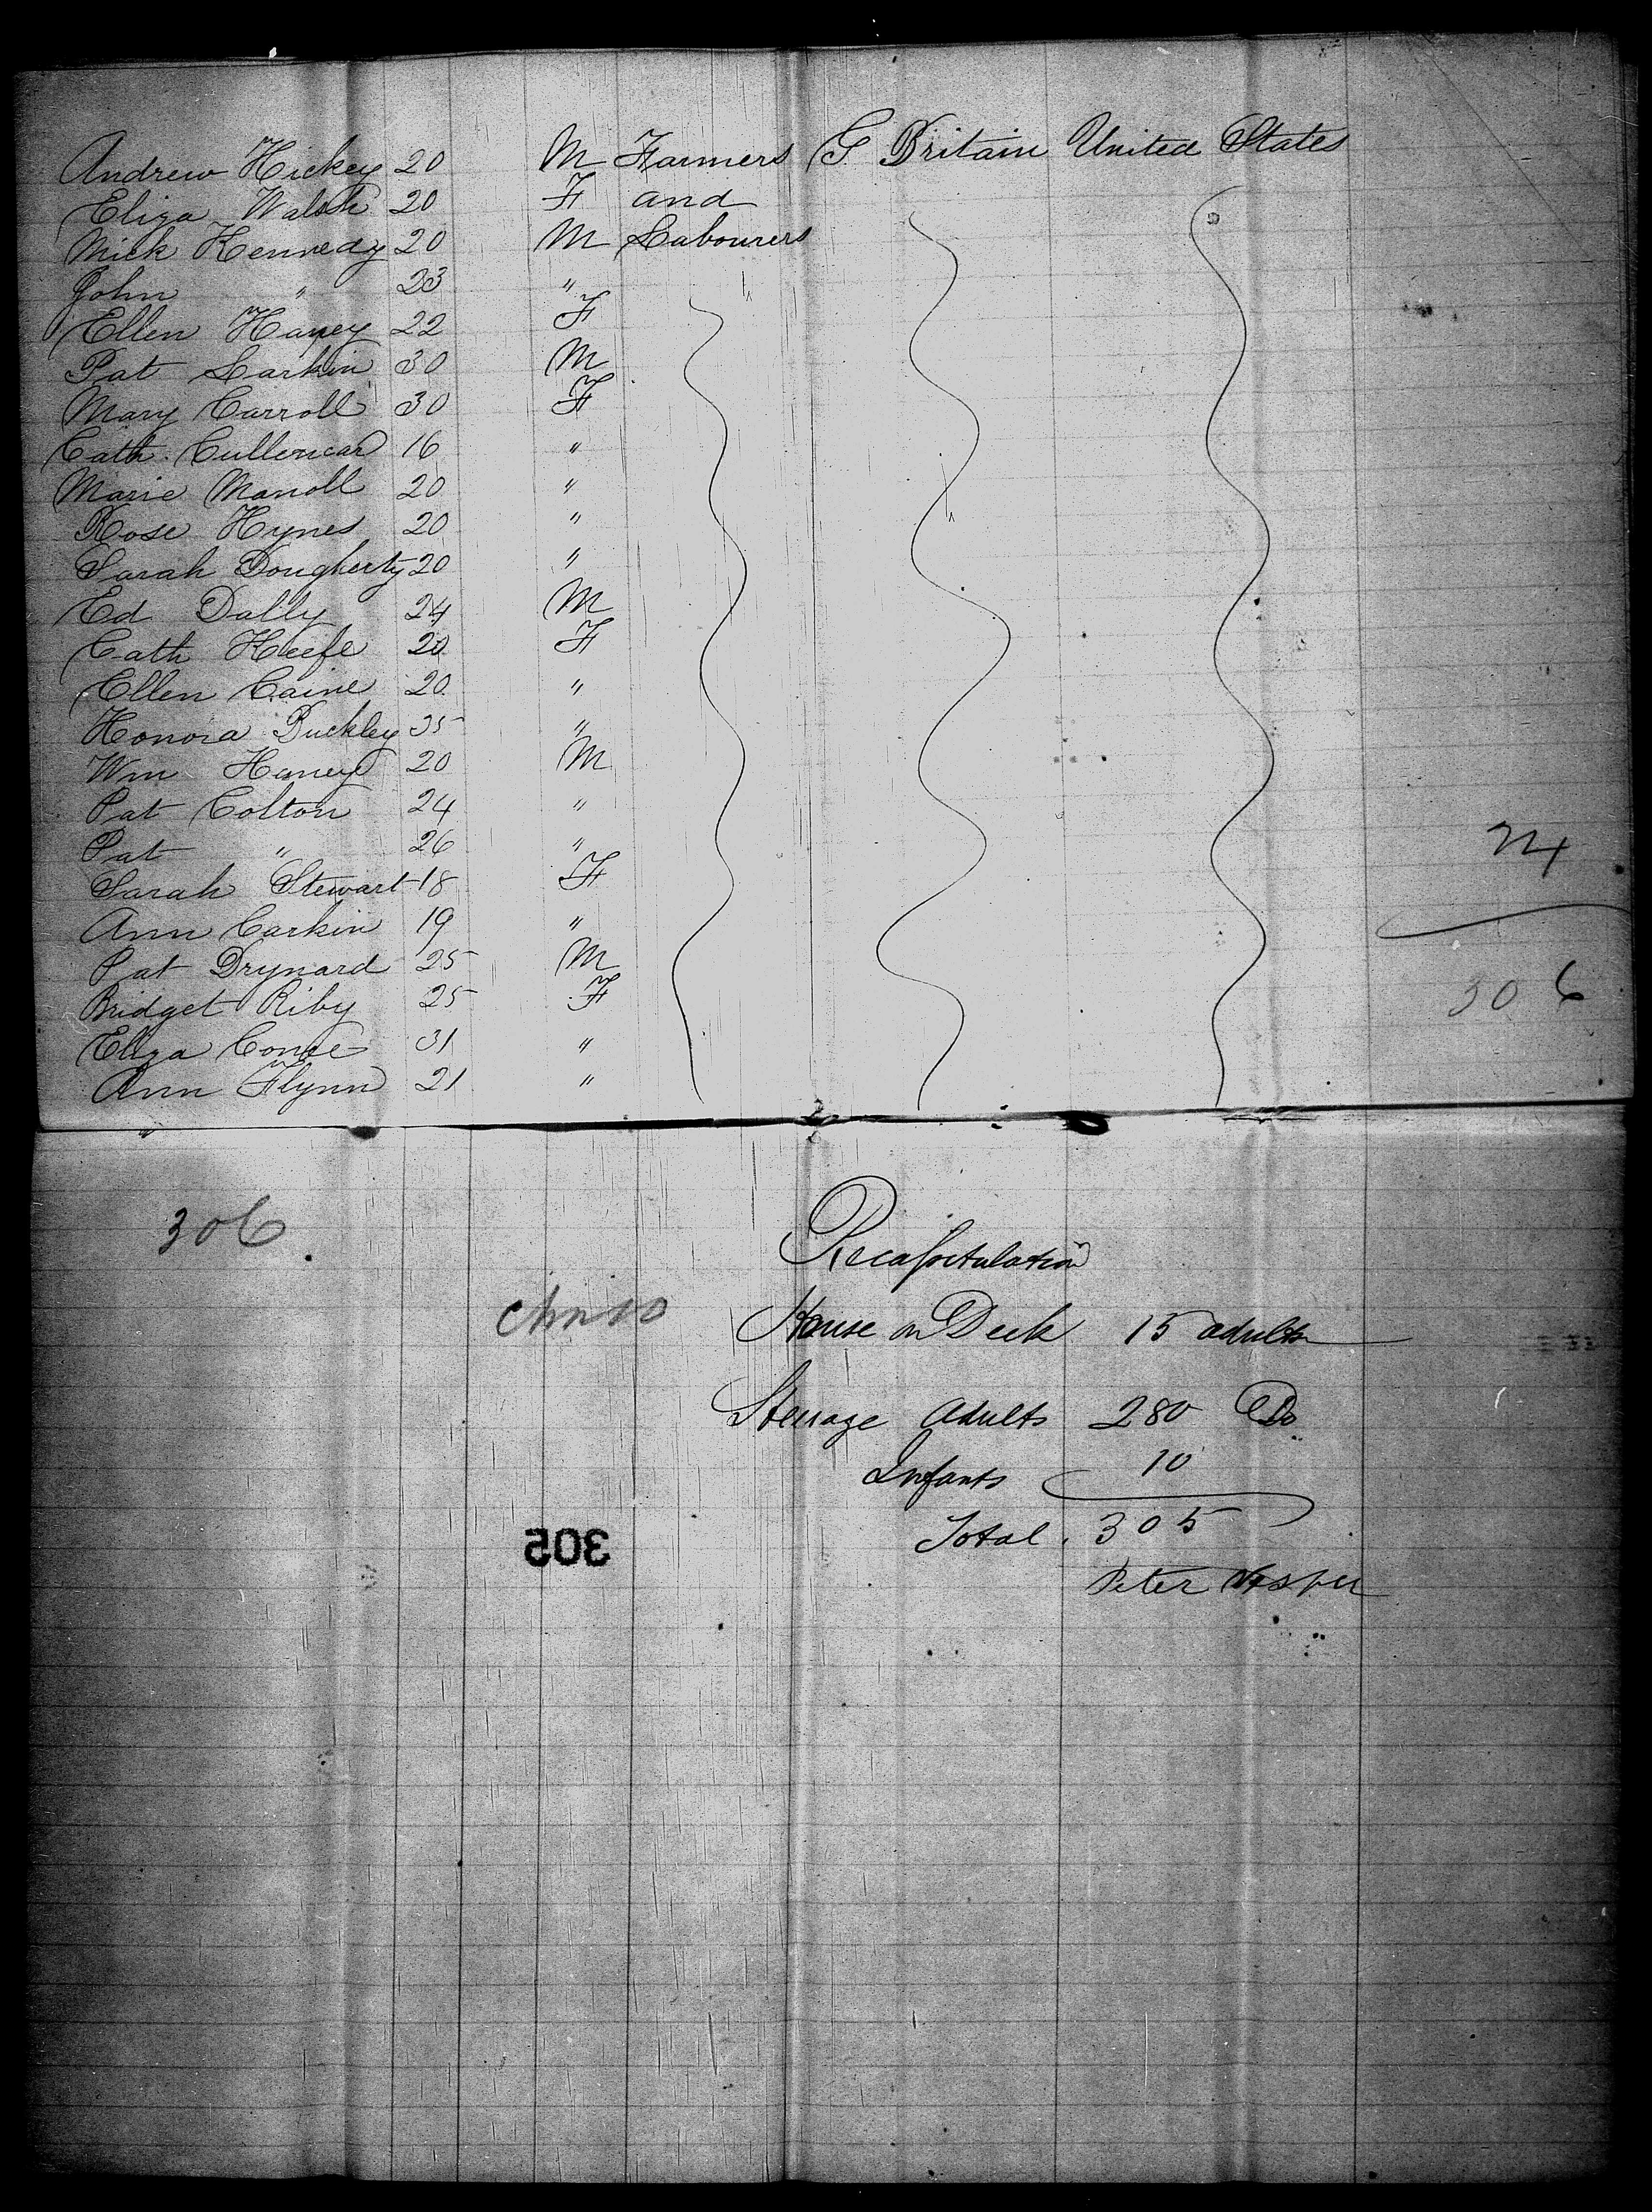 Andrew Hickey 20 M Farmers G. Britain United States
Eliza Walsh 20 F and
Mick Kennedy 20 M Labourers
John " 23 "
Ellen Haney 22 F
Pat Larkin 30 M
Mary Carroll 30 F
Cath. 16 "
Marie 20 "
Rose Hynes 20 "
Sarah Dougherty 20 "
Ed Dally 24 M
Cath Keefe 20 F
Ellen Caine 20 "
Honora Buckley 25 "
Wm Haney 20 M
Pat Colton 24 "
Pat " 26 "
Sarah Stewart 18 F
Ann Carkin 19 "
Pat Drynard 25 M
Bridget Riby 25 F
Eliza 31 "
Ann Flynn 21 "
24
306
306
Recapitulation
House on Deck 15 adults
Steerage Adults 280 Do
Infants 10
Total. 305
Peter Vesper
305